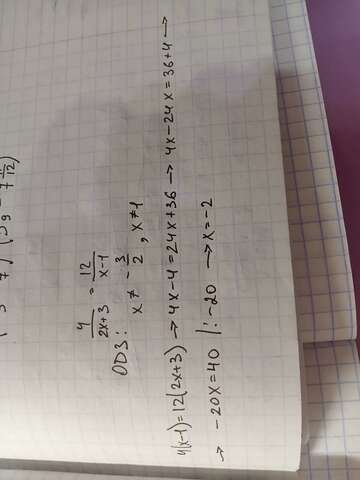 4/(2x+3) = 12/(x-1)
ОДЗ:
x ≠ -3/2, x ≠ 1
4(x-1)=12(2x+3) → 4x-4=24x+36 → 4x-24x=36+4 →
→ -20x=40 |:-20 → x=-2